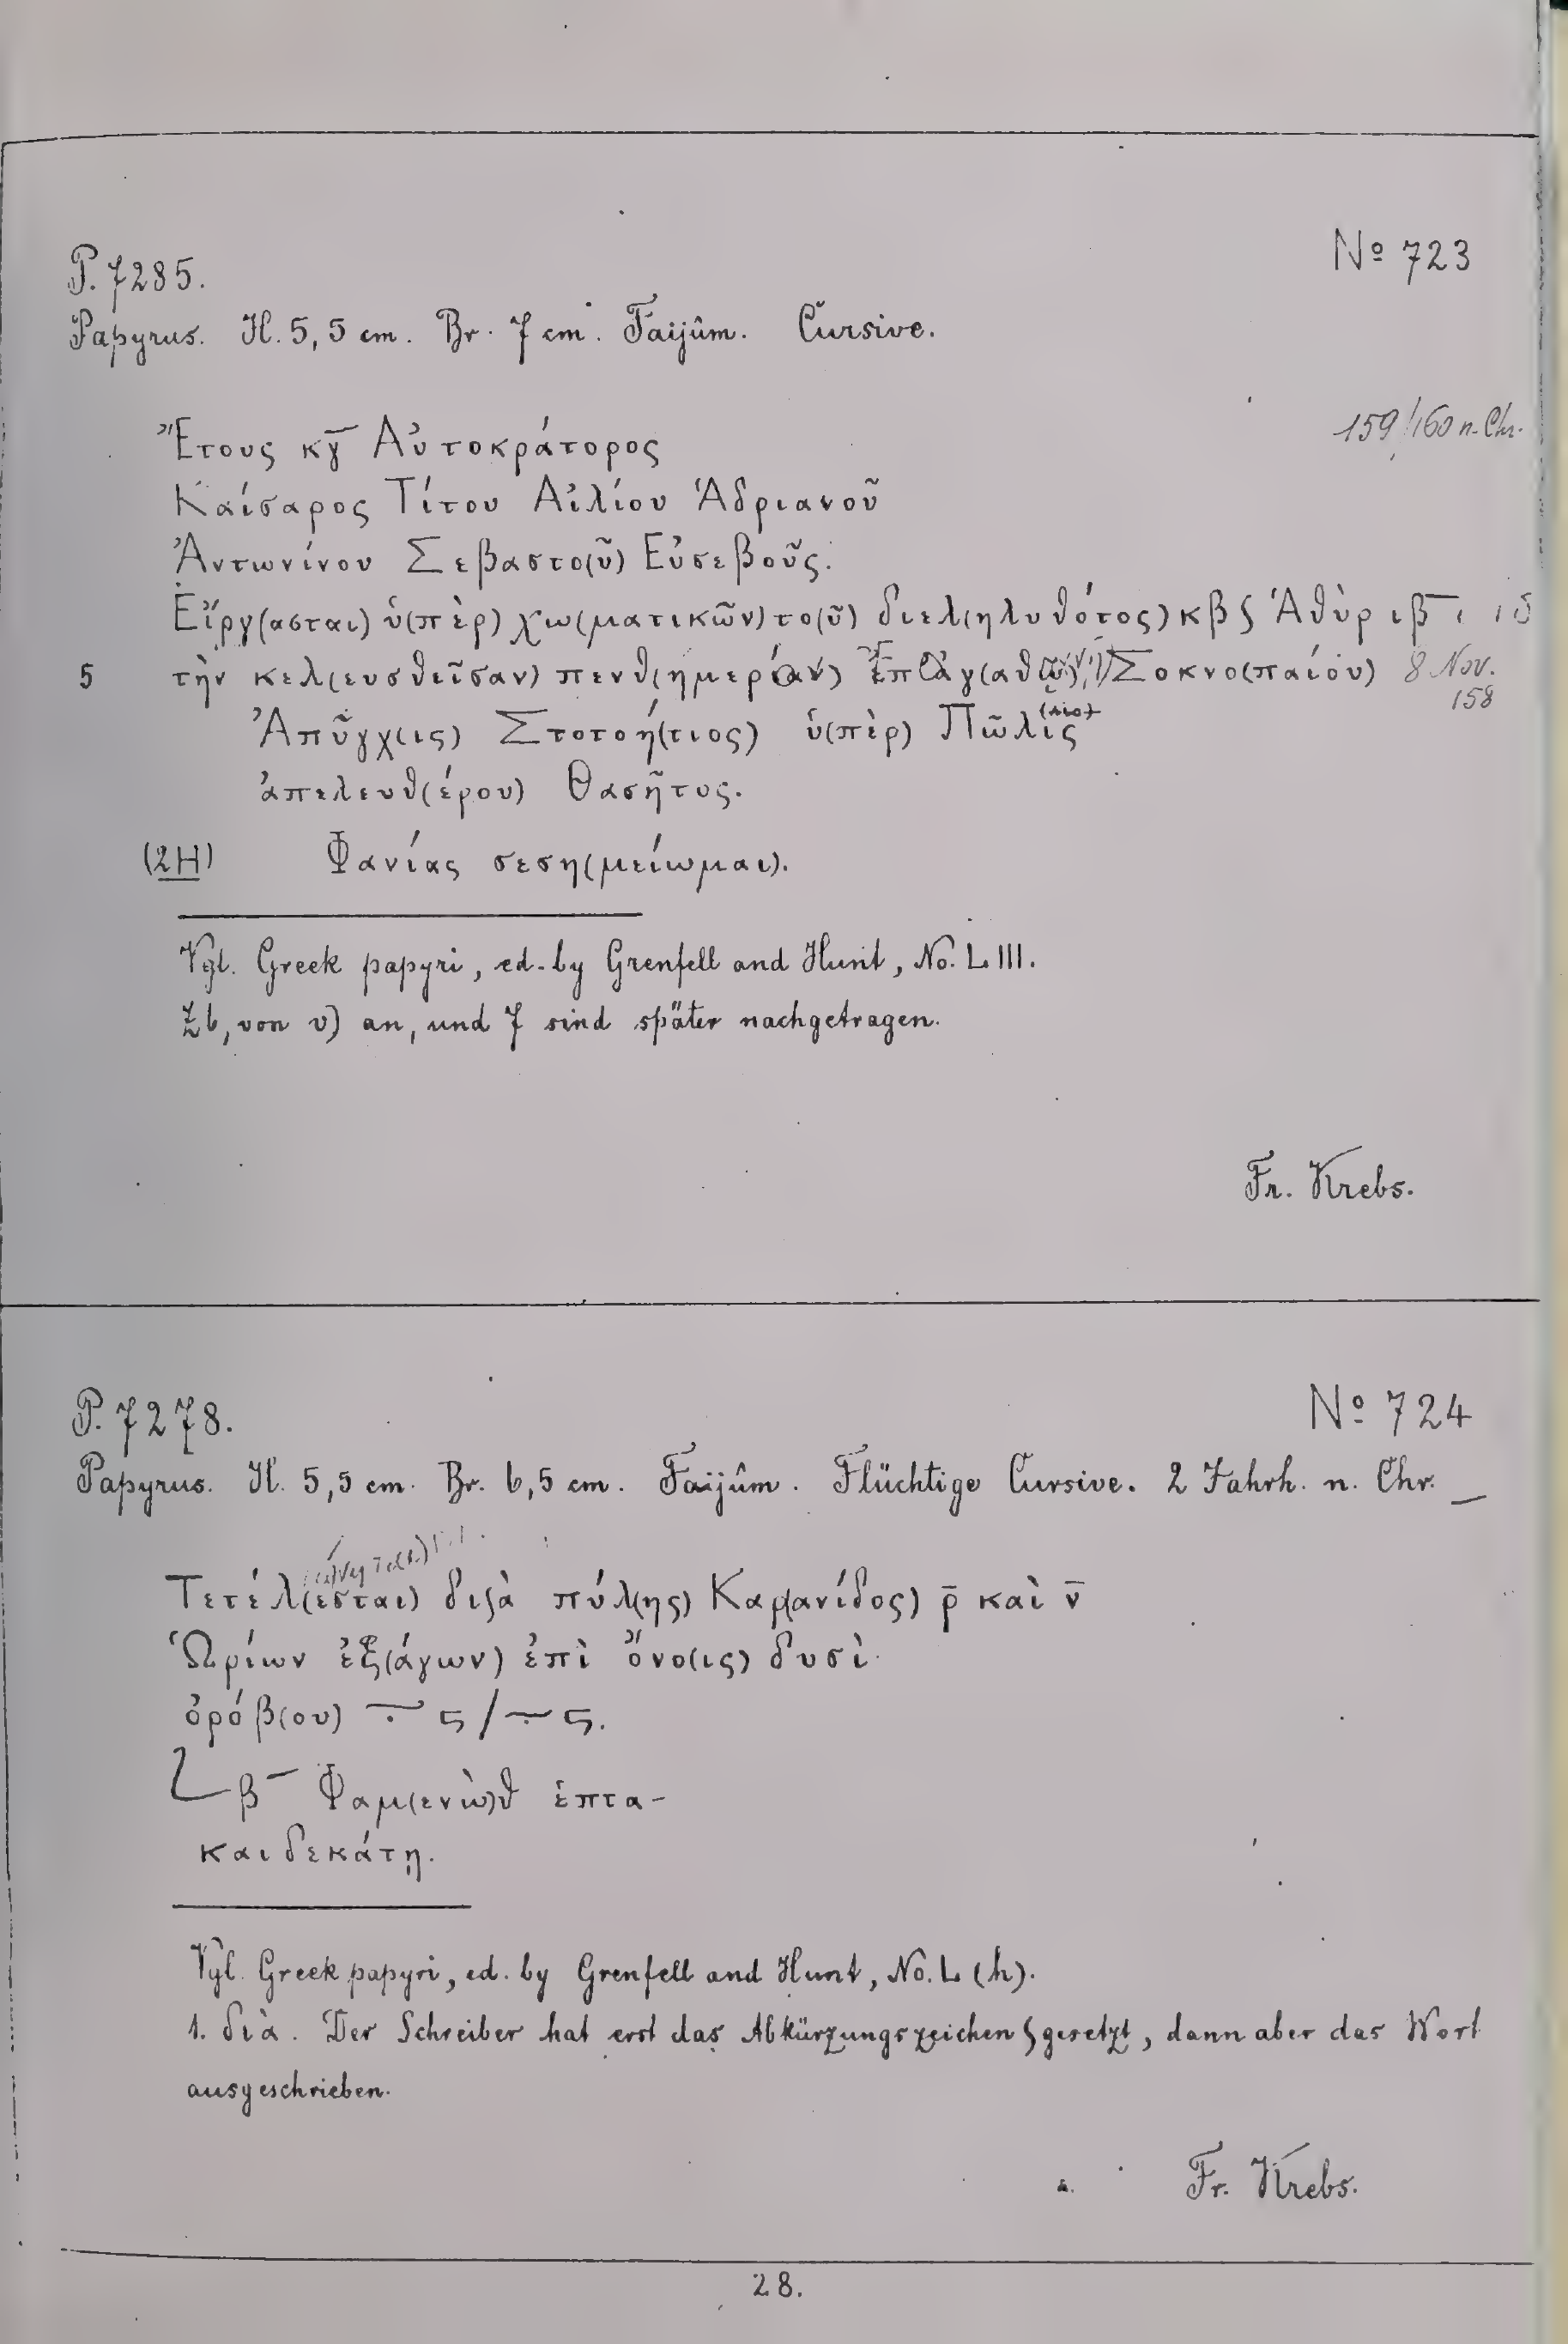 P. 7285.
No 723
Papyrus. H. 5,5 cm. Br. 7 cm. Faijûm. Cursive.
159/160 n. Chr.
Ἔτους κγ̅ Αὐτοκράτορος
Καίσαρος Τίτου Αἰλίου Ἁδριανοῦ
Ἀντωνίνου Σεβαστο(ῦ) Εὐσεβοῦς.
Εἴργ(ασται) ὑ(πὲρ) χω(ματικῶν) το(ῦ) διελ(ηλυθότος) κβ ϛ Ἁθὺρ ιβ̅
5 τὴν κελ(ευσθεῖσαν) πενθ(ημερίαν) Σοκνο(παίου) 8 Nov.
158
Ἀπῦγχ(ις) Στοτοή(τιος) ὑ(πὲρ) Πῶλις
ἀπελευθ(έρου) Θασῆτος.
(2H) Φανίας σεση(μείωμαι).
Vgl. Greek papyri, ed. by Grenfell and Hunt, No. LIII.
Z6, von υ) an, und 7 sind später nachgetragen.
Fr. Krebs.
P. 7278.
No 724
Papyrus. H. 5,5 cm. Br. 6,5 cm. Faijûm. Flüchtige Cursive. 2 Jahrh. n. Chr.
Τετέλ(εσται) διϛὰ πύλ(ης) Καρ(ανίδος) ρ̅ καὶ ν̅
Ὡρίων ἐξ(άγων) ἐπὶ ὄνο(ις) δυσὶ
ὀρόβ(ου) ÷ ϛ / ÷ ϛ.
L β̅ Φαμ(ενὼ)θ ἑπτα-
καιδεκάτῃ.
Vgl. Greek papyri, ed. by Grenfell and Hunt, No. L (h).
1. διὰ. Der Schreiber hat erst das Abkürzungszeichen ϛ gesetzt, dann aber das Wort
ausgeschrieben.
Fr. Krebs.
28.